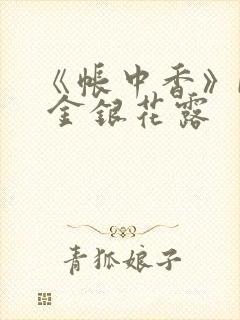 《帳中香》
金銀花露
青狐娘子